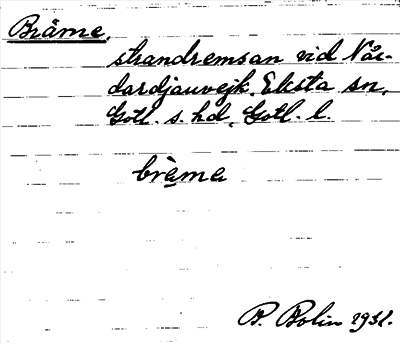 Bräme,
strandremsan vid Når-
dardjauvejk, Eksta sn,
Gotl. s. hd, Gotl. l.
bràma
B. Bolin 1931.